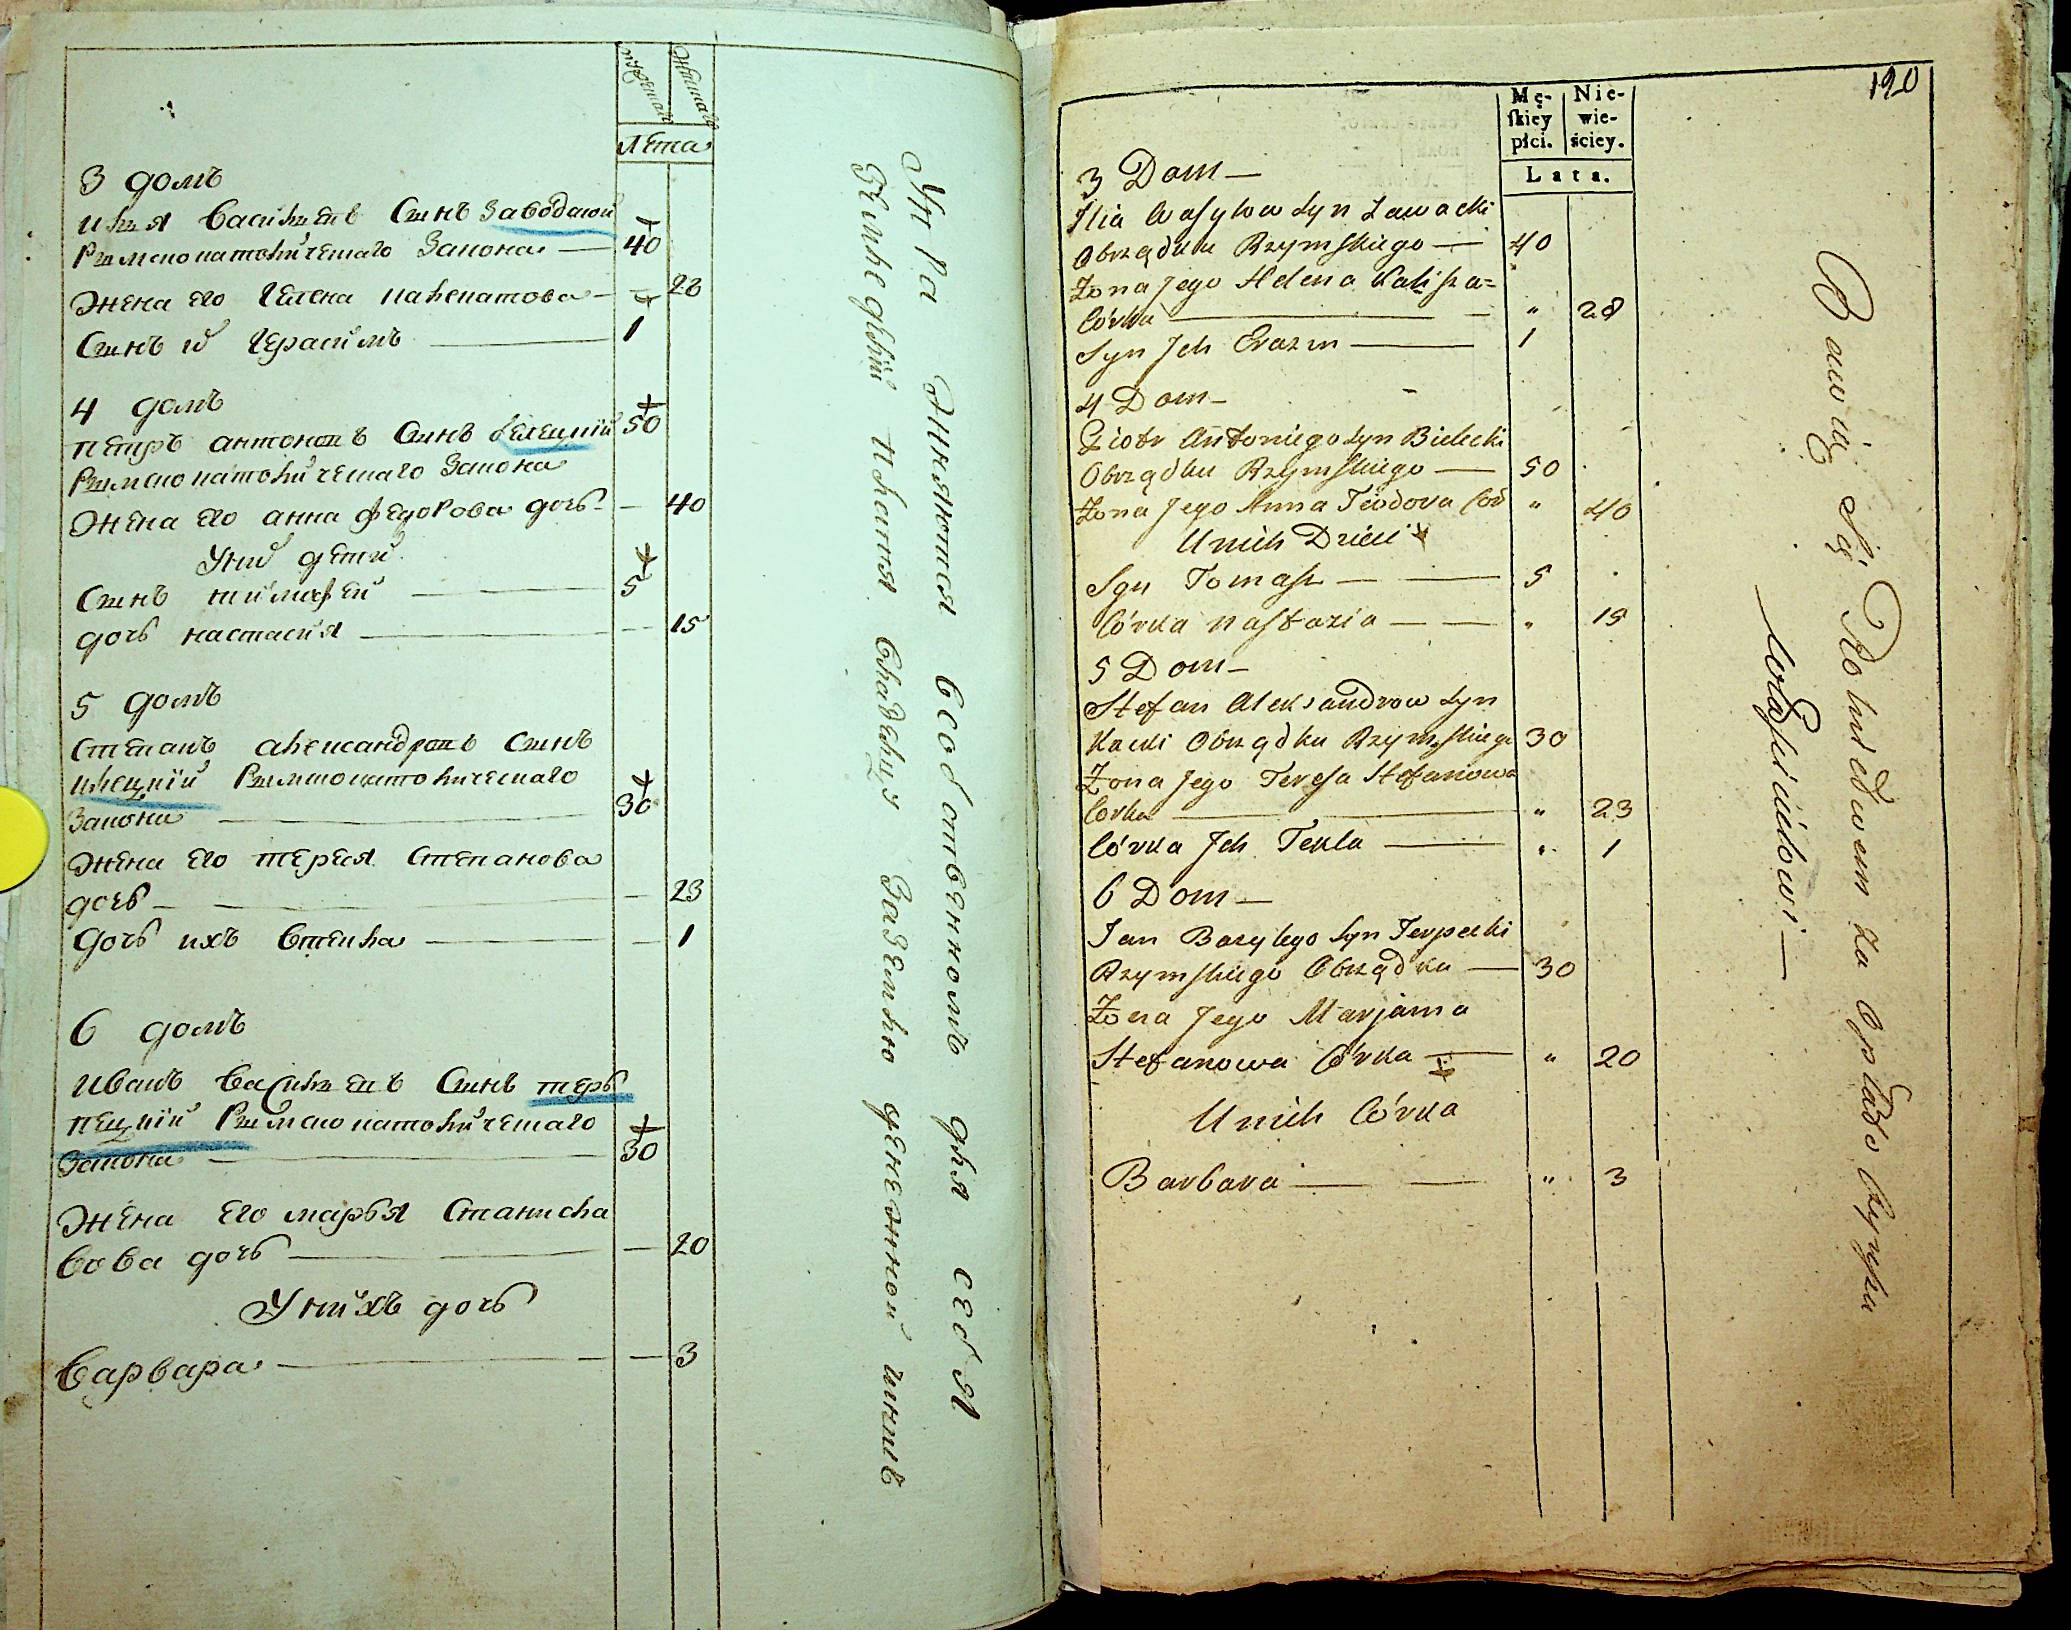 Лета
3 домъ
илья василиевъ синъ заводский
Римскокатоличешаго Закона — 40
Жена его Гелена — 28
Синъ ий Герасимъ — 1
4 домъ
петръ антоновъ Синъ белецкий 50
Римскокатоличешаго Закона
Жена его анна федорова дочь — 40
У ний дети
Синъ тимофей — 5
дочь настасия — 15
5 домъ
степанъ александровъ Синъ
Римскокатоличешаго
Закона — 30
Жена его тереся Степанова
дочь — 23
дочь ихъ — 1
6 домъ
иванъ василиевъ Синъ терь
пецкий Римскокатоличешаго
Закона — 30
Жена его марья Станисла
вова дочь — 20
У нихъ дочь
Варвара — 3
Упражняются всобственномъ для себя
земледелии платя владельцу за землю денежной чиншъ
120
Mę-
skiey
płci.
Nie-
wie-
ściey.
Lata.
3 Dom —
Ilia Wasylow Syn Zawacki
Obrządku Rzymskiego — 40
Żona Jego Helena
Córka — " 28
Syn Jch Erazm — 1
4 Dom —
Piotr Antoniego Syn Bielecki
Obrządku Rzymskiego — 50
Żona Jego Anna Teodora Cór " 40
U nich Dzieci
Syn Tomasz — — 5
Córka Nastazia — — " 15
5 Dom —
Stefan Aleksandrow Syn
Obrządku Rzymskiego 30
Żona Jego Teresa Stefanowa
Corka — " 23
Córka Jch Tekla — " 1
6 Dom —
Jan Bazylego Syn Terpecki
Rzymskiego Obrządku — 30
Żona Jego Marjanna
Stefanowa Córka — " 20
U nich Córka
Barbara — — " 3
Bawią Się Rolnictwem za Opłatą Czynszu
Właścicielowi —